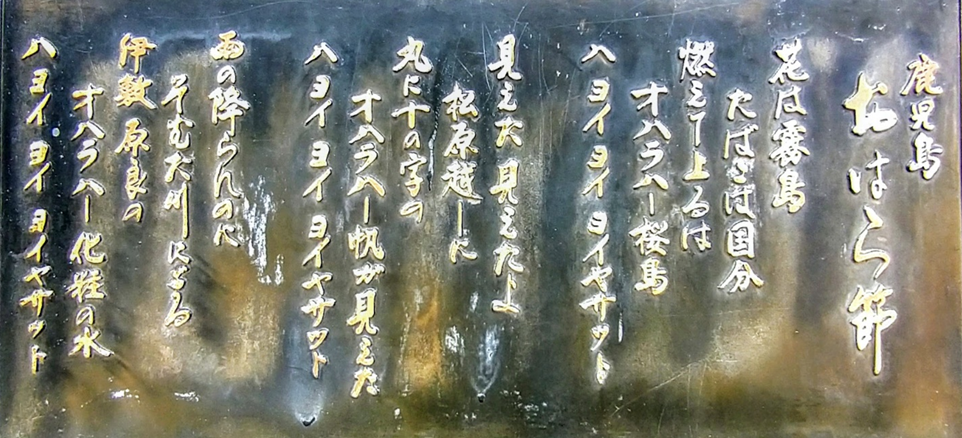 鹿児島
おはら節
花は霧島
たばこは国分
燃えて上るは
オハラハー桜島
ハ ヨイ ヨイ ヨイヤサット
見えた見えたよ
松原越しに
丸に十の字の
オハラハー帆が見えた
ハ ヨイ ヨイ ヨイヤサット
雨の降らんのに
そむた川にごる
伊敷原良の
オハラハー化粧の水
ハ ヨイ ヨイ ヨイヤサット